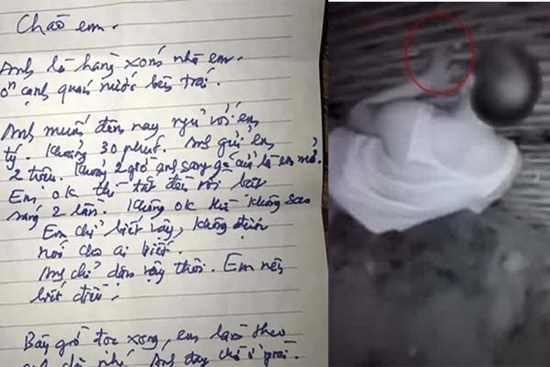 Chào em.
Anh là hàng xóm nhà em.
ở cạnh quán nước bên trái.
Anh muốn đêm nay ngủ với em
tý. Khoảng 30 phút. Anh gửi em
2 triệu. Khoảng 2 giờ anh sang gõ cửa là em mở.
Em ok thì tắt đèn rồi bật
sáng 2 lần. Không ok thì không sao
Em chỉ biết vậy, không được
nói cho ai biết.
Anh chỉ dám vậy thôi. Em nên
biết điều.
Bây giờ đọc xong, em làm theo
anh nhé. Anh đây chờ ở